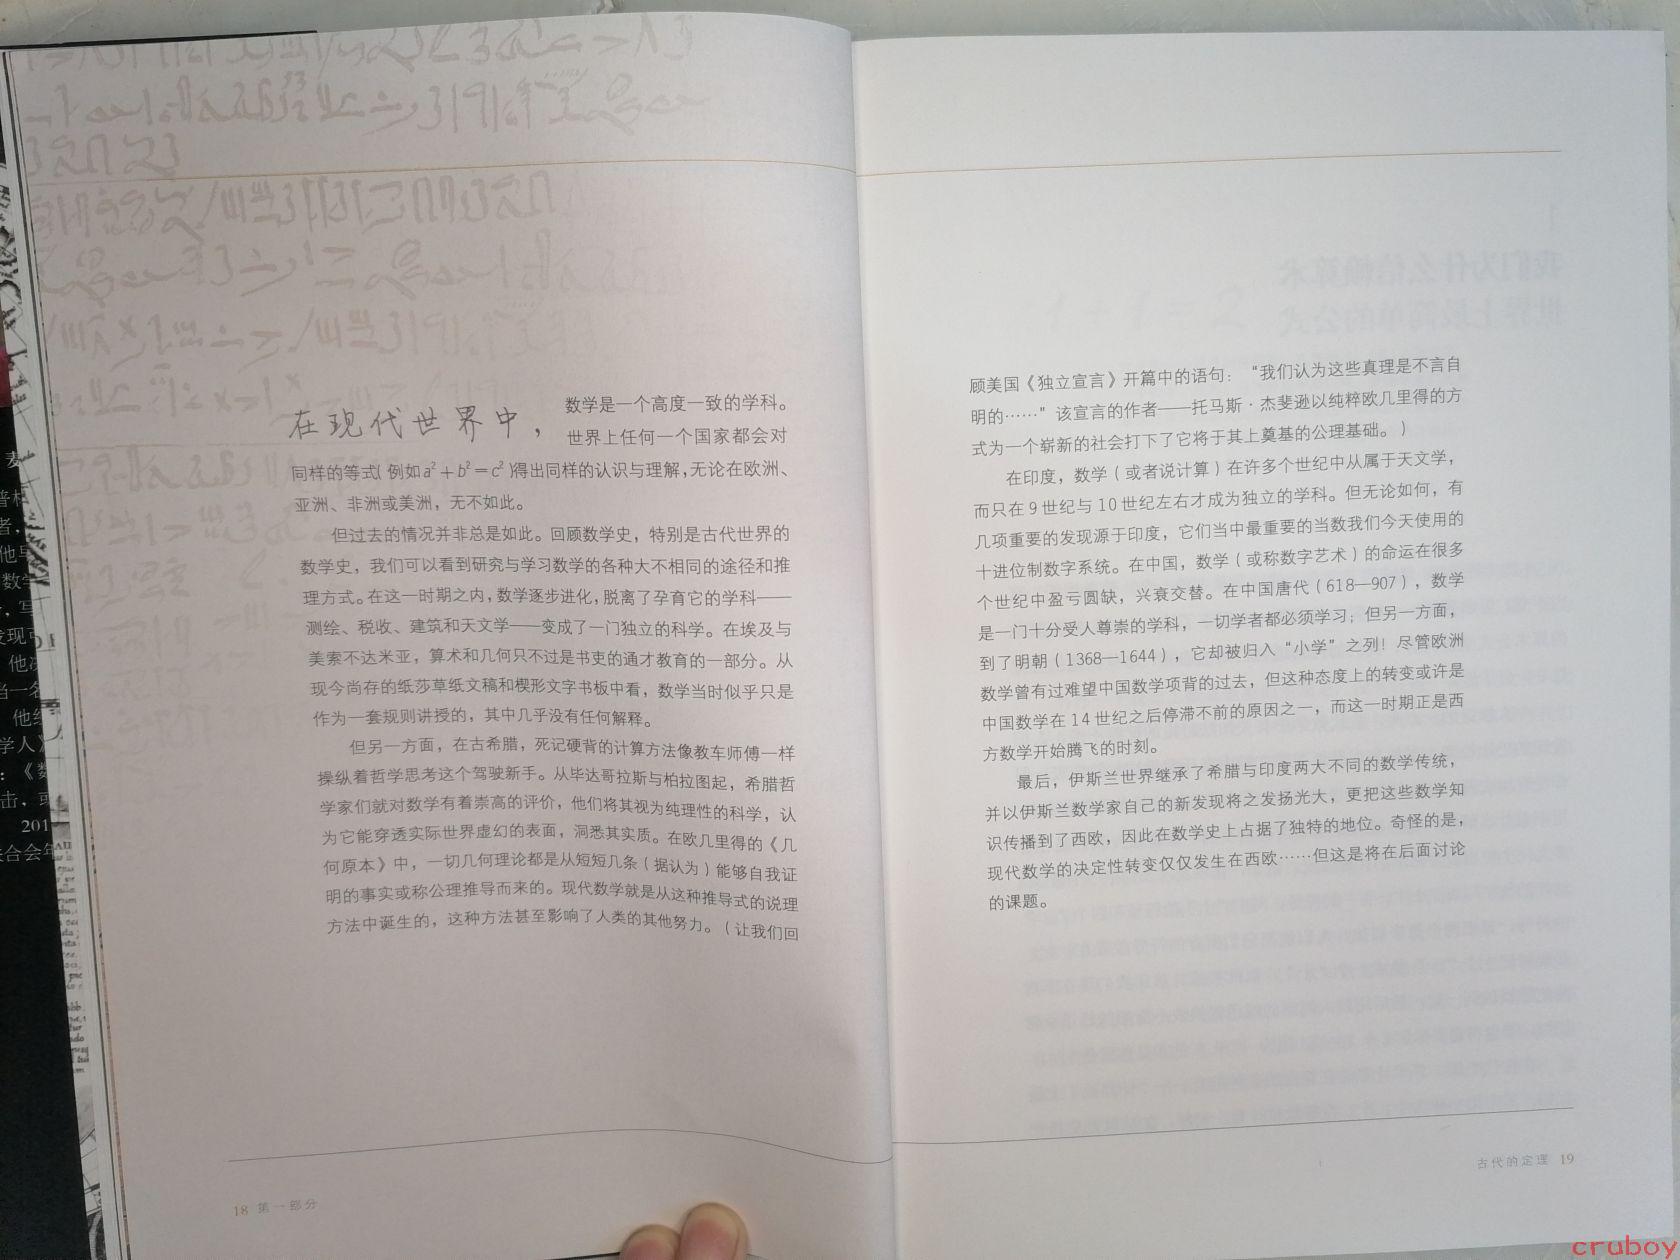 在现代世界中，数学是一个高度一致的学科。
世界上任何一个国家都会对
同样的等式(例如a²+b²=c²)得出同样的认识与理解,无论在欧洲、
亚洲、非洲或美洲，无不如此。
但过去的情况并非总是如此。回顾数学史，特别是古代世界的
数学史，我们可以看到研究与学习数学的各种大不相同的途径和推
理方式。在这一时期之内,数学逐步进化,脱离了孕育它的学科——
测绘、税收、建筑和天文学——变成了一门独立的科学。在埃及与
美索不达米亚，算术和几何只不过是书吏的通才教育的一部分。从
现今尚存的纸莎草纸文稿和楔形文字书板中看，数学当时似乎只是
作为一套规则讲授的，其中几乎没有任何解释。
但另一方面，在古希腊，死记硬背的计算方法像教车师傅一样
操纵着哲学思考这个驾驶新手。从毕达哥拉斯与柏拉图起，希腊哲
学家们就对数学有着崇高的评价，他们将其视为纯理性的科学，认
为它能穿透实际世界虚幻的表面，洞悉其实质。在欧几里得的《几
何原本》中，一切几何理论都是从短短几条（据认为）能够自我证
明的事实或称公理推导而来的。现代数学就是从这种推导式的说理
方法中诞生的，这种方法甚至影响了人类的其他努力。（让我们回
18 第一部分
顾美国《独立宣言》开篇中的语句：“我们认为这些真理是不言自
明的……”该宣言的作者——托马斯·杰斐逊以纯粹欧几里得的方
式为一个崭新的社会打下了它将于其上奠基的公理基础。）
在印度，数学（或者说计算）在许多个世纪中从属于天文学，
而只在9世纪与10世纪左右才成为独立的学科。但无论如何，有
几项重要的发现源于印度，它们当中最重要的当数我们今天使用的
十进位制数字系统。在中国，数学（或称数字艺术）的命运在很多
个世纪中盈亏圆缺，兴衰交替。在中国唐代（618—907），数学
是一门十分受人尊崇的学科，一切学者都必须学习；但另一方面，
到了明朝（1368—1644），它却被归入“小学”之列！尽管欧洲
数学曾有过难望中国数学项背的过去，但这种态度上的转变或许是
中国数学在14世纪之后停滞不前的原因之一，而这一时期正是西
方数学开始腾飞的时刻。
最后，伊斯兰世界继承了希腊与印度两大不同的数学传统，
并以伊斯兰数学家自己的新发现将之发扬光大，更把这些数学知
识传播到了西欧，因此在数学史上占据了独特的地位。奇怪的是，
现代数学的决定性转变仅仅发生在西欧……但这是将在后面讨论
的课题。
古代的定理 19
cruboy